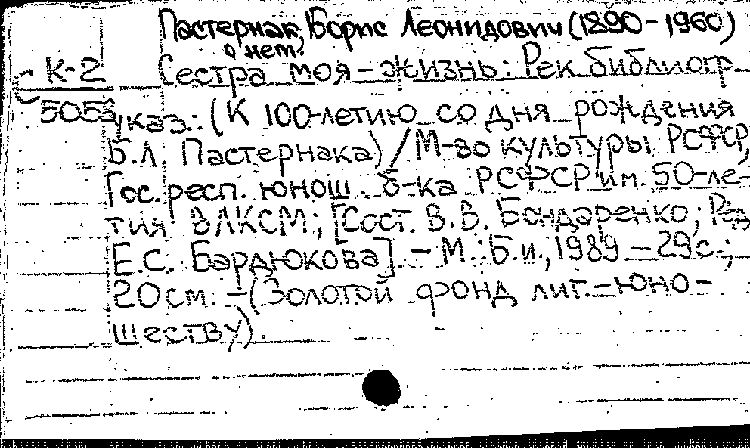 Пастернак, Борис Леонидович (1890-1960)
о нет:
С К-2 Сестра моя - жизнь: Рек. библиогр.
5053 указ.: (К 100-летию со дня рождения
Б.Л. Пастернака) / М-во культуры РСФСР,
Гос. респ. юнош. б-ка РСФСР им. 50-ле-
тия ВЛКСМ; [Сост. В.В. Бондаренко; Ред.
Е.С. Бардюкова]. - М.: Б.и., 1989 - 29 с.;
20 см. - (Золотой фонд лит. - юно-
шеству).